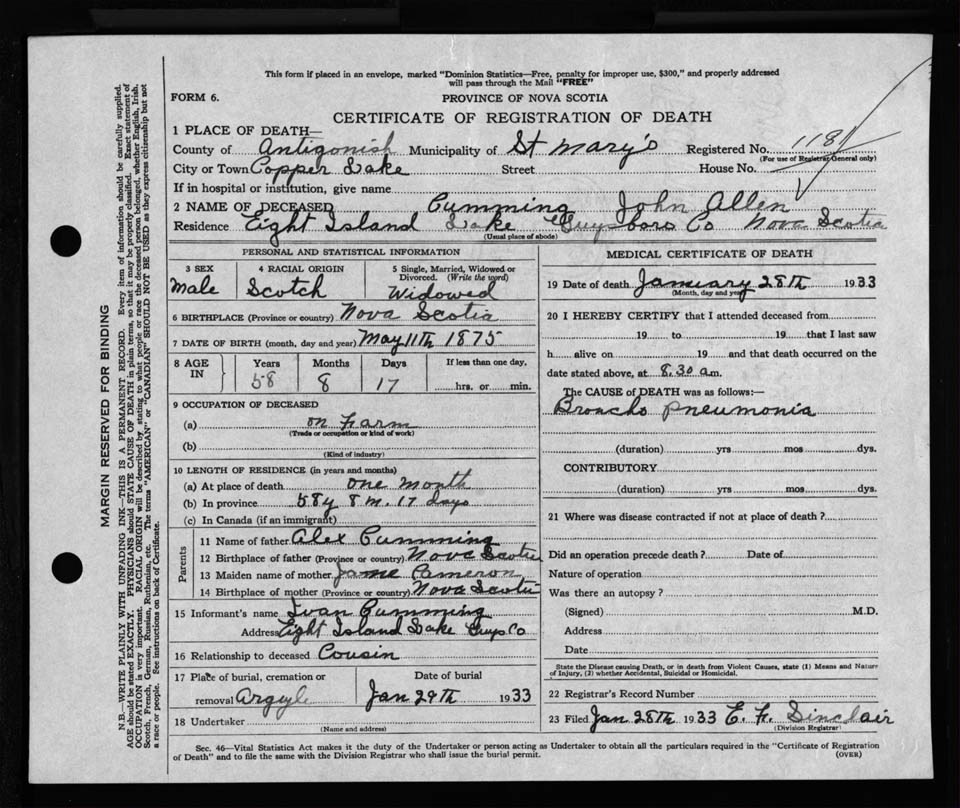 This form if placed in an envelope, marked "Dominion Statistics—Free, penalty for improper use, $300," and properly addressed
will pass through the Mail "FREE"
FORM 6.
PROVINCE OF NOVA SCOTIA
CERTIFICATE OF REGISTRATION OF DEATH
1 PLACE OF DEATH—
County of Antigonish Municipality of St Mary's Registered No. 1181
(For use of Registrar General only)
City or Town Copper Lake Street House No.
If in hospital or institution, give name
2 NAME OF DECEASED Cumming John Allen
Residence Eight Island Lake Guysboro Co Nova Scotia
(Usual place of abode)
PERSONAL AND STATISTICAL INFORMATION
3 SEX 4 RACIAL ORIGIN 5 Single, Married, Widowed or
Divorced. (Write the word)
Male Scotch Widowed
6 BIRTHPLACE (Province or country) Nova Scotia
7 DATE OF BIRTH (month, day and year) May 11th 1875
8 AGE IN Years Months Days If less than one day,
58 8 17 hrs. or min.
9 OCCUPATION OF DECEASED
(a) on Farm
(Trade or occupation or kind of work)
(b)
(Kind of industry)
10 LENGTH OF RESIDENCE (in years and months)
(a) At place of death one month
(b) In province 58y 8 m. 17 days
(c) In Canada (if an immigrant)
Parents
11 Name of father Alex Cumming
12 Birthplace of father (Province or country) Nova Scotia
13 Maiden name of mother Jame Cameron
14 Birthplace of mother (Province or country) Nova Scotia
15 Informant's name Ivan Cumming
Address Eight Island Lake Guys Co
16 Relationship to deceased Cousin
17 Place of burial, cremation or Date of burial
removal Argyle Jan 29th 1933
18 Undertaker
(Name and address)
MEDICAL CERTIFICATE OF DEATH
19 Date of death January 28th 1933
(Month, day and year)
20 I HEREBY CERTIFY that I attended deceased from
19 to 19 that I last saw
h alive on 19 and that death occurred on the
date stated above, at 8.30 am.
The CAUSE of DEATH was as follows:—
Broncho Pneumonia
(duration) yrs mos dys.
CONTRIBUTORY
(duration) yrs mos dys.
21 Where was disease contracted if not at place of death?
Did an operation precede death? Date of
Nature of operation
Was there an autopsy?
(Signed) M.D.
Address
Date
State the Disease causing Death, or in death from Violent Causes, state (1) Means and Nature
of Injury, (2) whether Accidental, Suicidal or Homicidal.
22 Registrar's Record Number
23 Filed Jan 28th 1933 E. H. Sinclair
(Division Registrar)
Sec. 46—Vital Statistics Act makes it the duty of the Undertaker or person acting as Undertaker to obtain all the particulars required in the "Certificate of Registration
of Death" and to file the same with the Division Registrar who shall issue the burial permit.
(OVER)
MARGIN RESERVED FOR BINDING
N.B.—WRITE PLAINLY WITH UNFADING INK—THIS IS A PERMANENT RECORD. Every item of information should be carefully supplied.
AGE should be stated EXACTLY. PHYSICIANS should STATE CAUSE OF DEATH in plain terms, so that it may be properly classified. Exact statement of
OCCUPATION is very important. RACIAL ORIGIN will be described by stating to what people or race the deceased person belonged, whether English, Irish,
Scotch, French, German, Russian, Ruthenian, etc. The terms "AMERICAN" or "CANADIAN" SHOULD NOT BE USED as they express citizenship but not
a race or people. See instructions on back of Certificate.